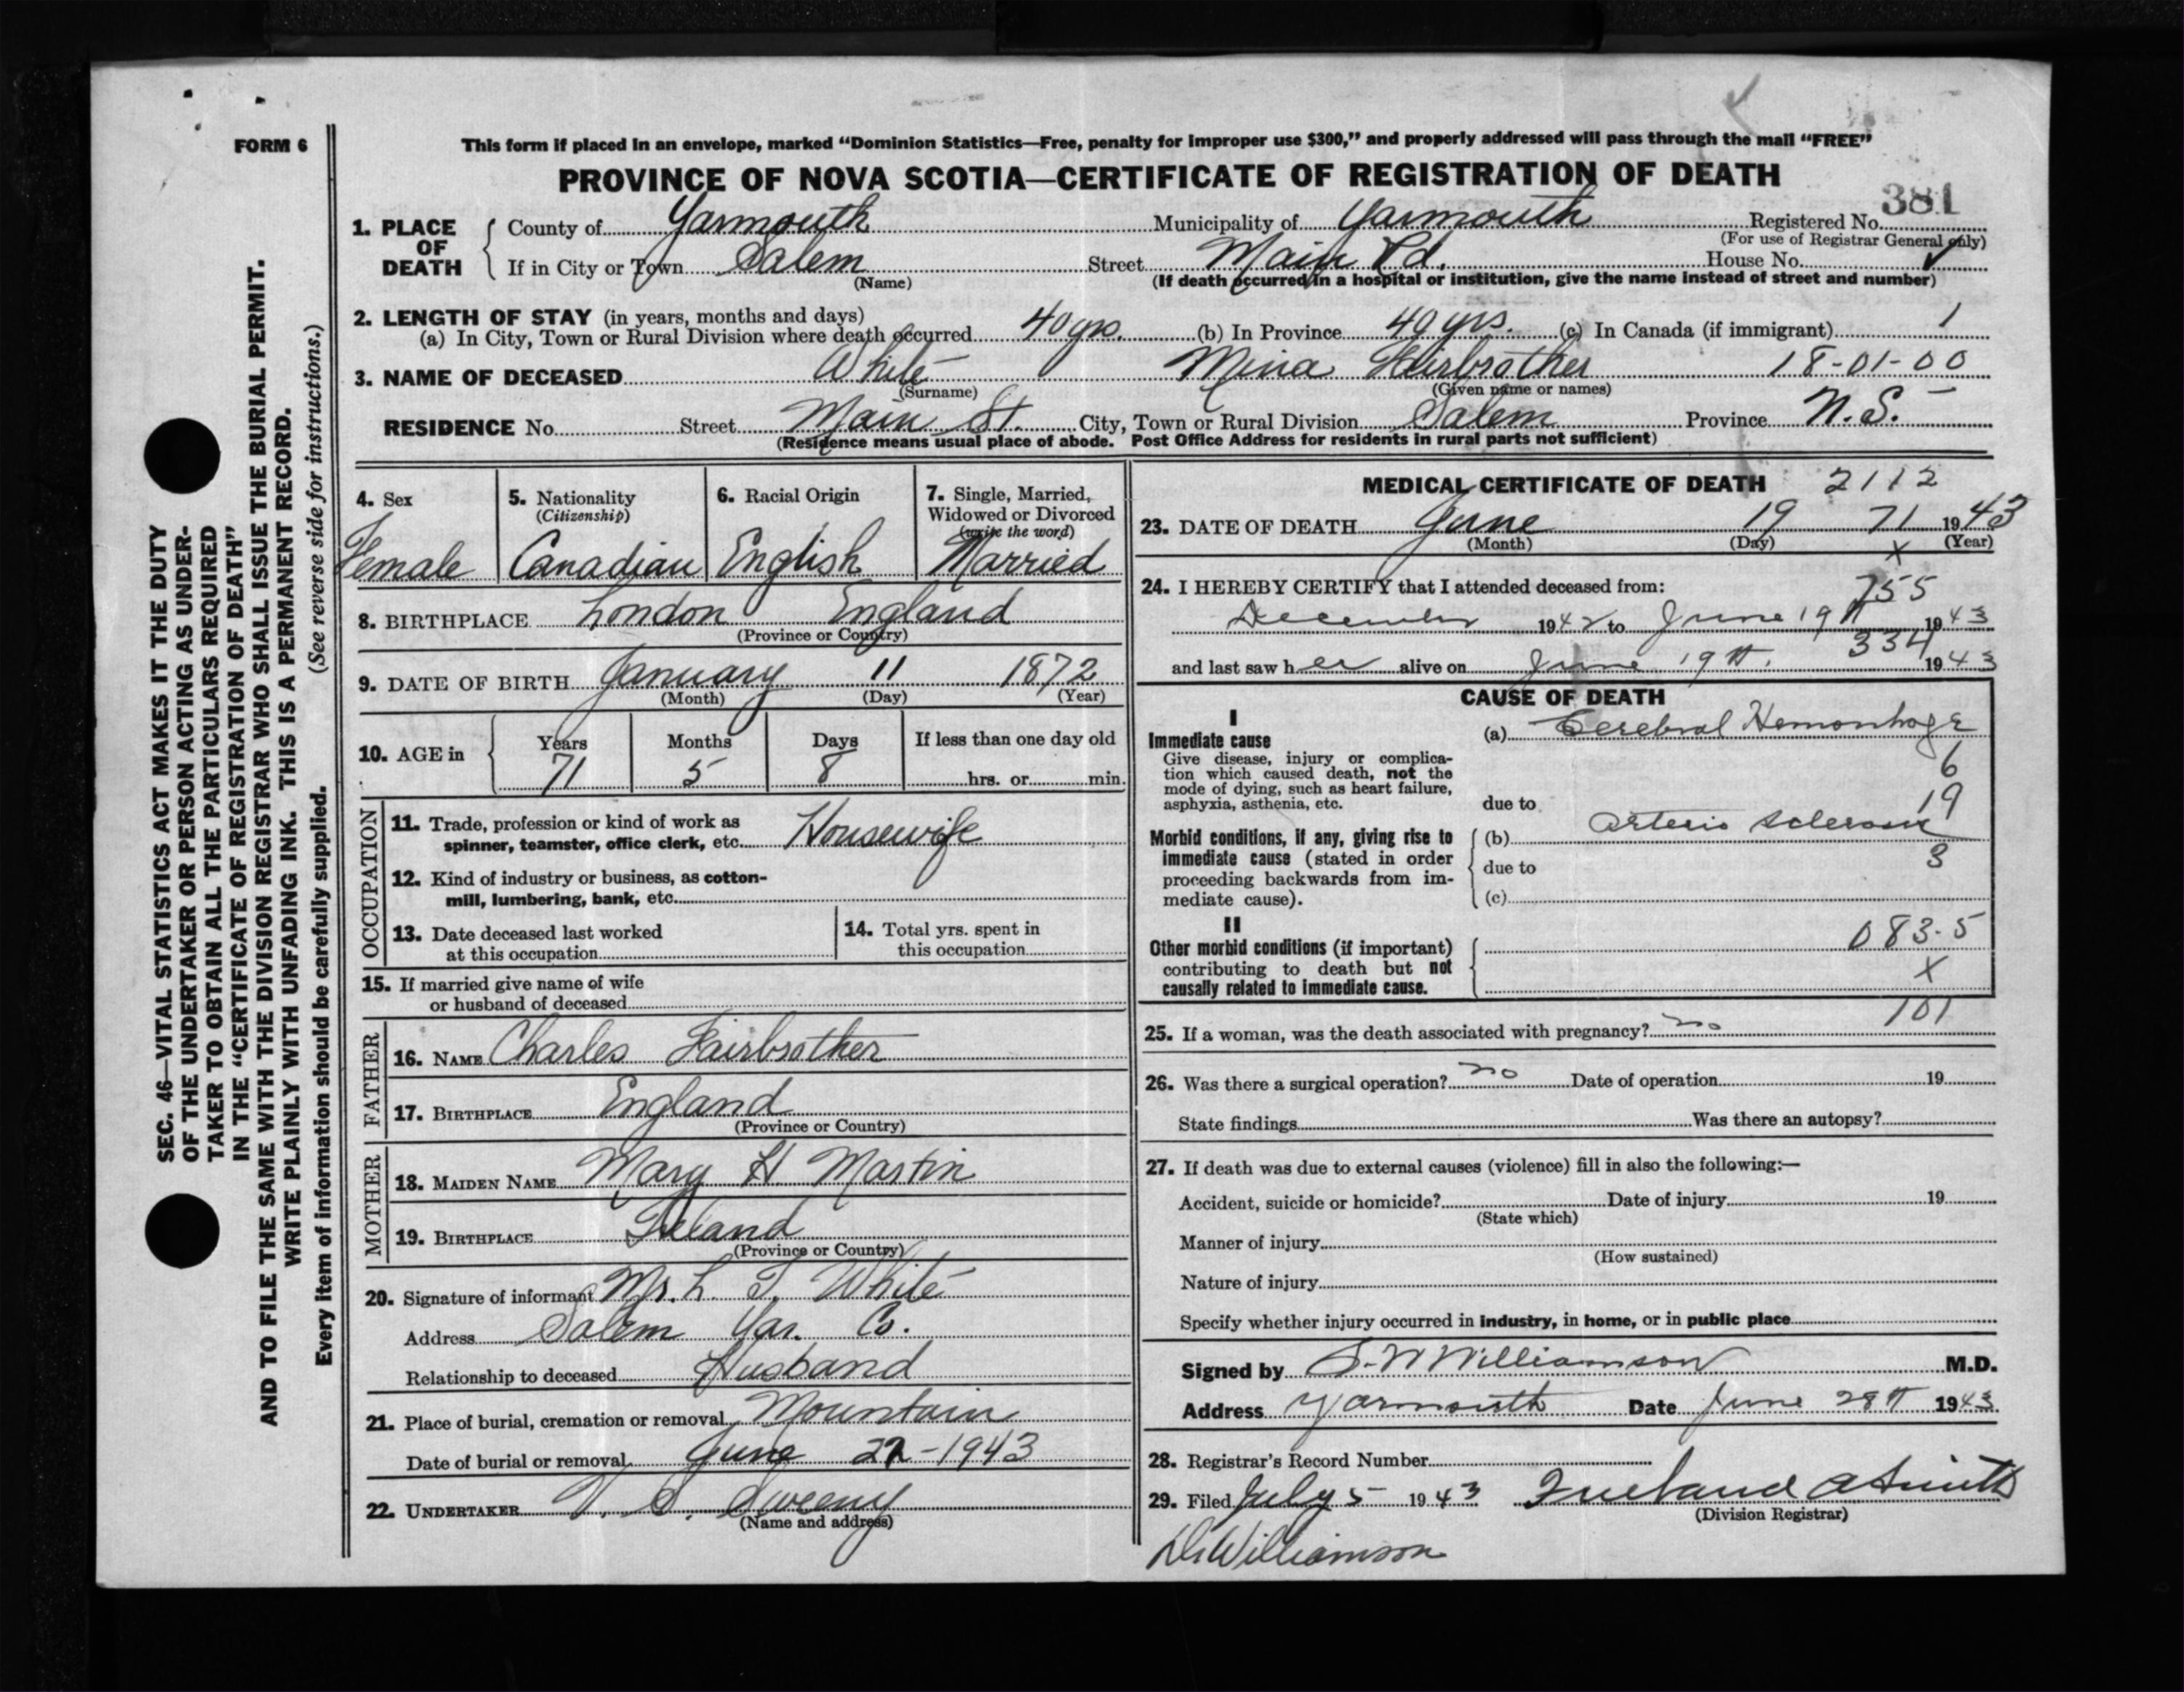 FORM 6
SEC. 46—VITAL STATISTICS ACT MAKES IT THE DUTY
OF THE UNDERTAKER OR PERSON ACTING AS UNDER-
TAKER TO OBTAIN ALL THE PARTICULARS REQUIRED
IN THE "CERTIFICATE OF REGISTRATION OF DEATH"
AND TO FILE THE SAME WITH THE DIVISION REGISTRAR WHO SHALL ISSUE THE BURIAL PERMIT.
WRITE PLAINLY WITH UNFADING INK. THIS IS A PERMANENT RECORD.
Every item of information should be carefully supplied. (See reverse side for instructions.)
This form if placed in an envelope, marked "Dominion Statistics—Free, penalty for improper use $300," and properly addressed will pass through the mail "FREE"
PROVINCE OF NOVA SCOTIA—CERTIFICATE OF REGISTRATION OF DEATH
1. PLACE OF DEATH County of Yarmouth Municipality of Yarmouth Registered No. 381
(For use of Registrar General only)
If in City or Town Salem Street Main Rd. House No.
(Name) (If death occurred in a hospital or institution, give the name instead of street and number)
2. LENGTH OF STAY (in years, months and days)
(a) In City, Town or Rural Division where death occurred 40 yrs. (b) In Province 40 yrs. (c) In Canada (if immigrant) 1
3. NAME OF DECEASED White Mina Fairbrother 18-01-00
(Surname) (Given name or names)
RESIDENCE No. Street Main St. City, Town or Rural Division Salem Province N.S.
(Residence means usual place of abode. Post Office Address for residents in rural parts not sufficient)
4. Sex
Female
5. Nationality
(Citizenship)
Canadian
6. Racial Origin
English
7. Single, Married,
Widowed or Divorced
(write the word)
Married
8. BIRTHPLACE London England
(Province or Country)
9. DATE OF BIRTH January 11 1872
(Month) (Day) (Year)
10. AGE in Years Months Days If less than one day old
71 5 8 hrs. or min.
OCCUPATION
11. Trade, profession or kind of work as
spinner, teamster, office clerk, etc. Housewife
12. Kind of industry or business, as cotton-
mill, lumbering, bank, etc.
13. Date deceased last worked
at this occupation
14. Total yrs. spent in
this occupation
15. If married give name of wife
or husband of deceased
FATHER
16. NAME Charles Fairbrother
17. BIRTHPLACE England
(Province or Country)
MOTHER
18. MAIDEN NAME Mary H Martin
19. BIRTHPLACE Ireland
(Province or Country)
20. Signature of informant Mr. L. T. White
Address Salem Yar. Co.
Relationship to deceased Husband
21. Place of burial, cremation or removal Mountain
Date of burial or removal June -1943
22. UNDERTAKER V. S. Sweeny
(Name and address)
MEDICAL CERTIFICATE OF DEATH 2112
23. DATE OF DEATH June 19 71 1943
(Month) (Day) (Year)
X
24. I HEREBY CERTIFY that I attended deceased from:
755
December 1942 to June 19th 1943
334
and last saw her alive on June 19th. 1943
CAUSE OF DEATH
I
Immediate cause
Give disease, injury or complica-
tion which caused death, not the
mode of dying, such as heart failure,
asphyxia, asthenia, etc.
(a) Cerebral Hemorrhage
6
19
due to
Morbid conditions, if any, giving rise to
immediate cause (stated in order
proceeding backwards from im-
mediate cause).
(b) Arterio Sclerosis
3
due to
(c)
II
Other morbid conditions (if important)
contributing to death but not
causally related to immediate cause.
083.5
X
101
25. If a woman, was the death associated with pregnancy? no
26. Was there a surgical operation? no Date of operation 19
State findings Was there an autopsy?
27. If death was due to external causes (violence) fill in also the following:—
Accident, suicide or homicide? Date of injury 19
(State which)
Manner of injury
(How sustained)
Nature of injury
Specify whether injury occurred in industry, in home, or in public place
Signed by S. W Williamson M.D.
Address Yarmouth Date June 28th 1943
28. Registrar's Record Number
29. Filed July 5 1943 Freeland A Smith
(Division Registrar)
Dr Williamson